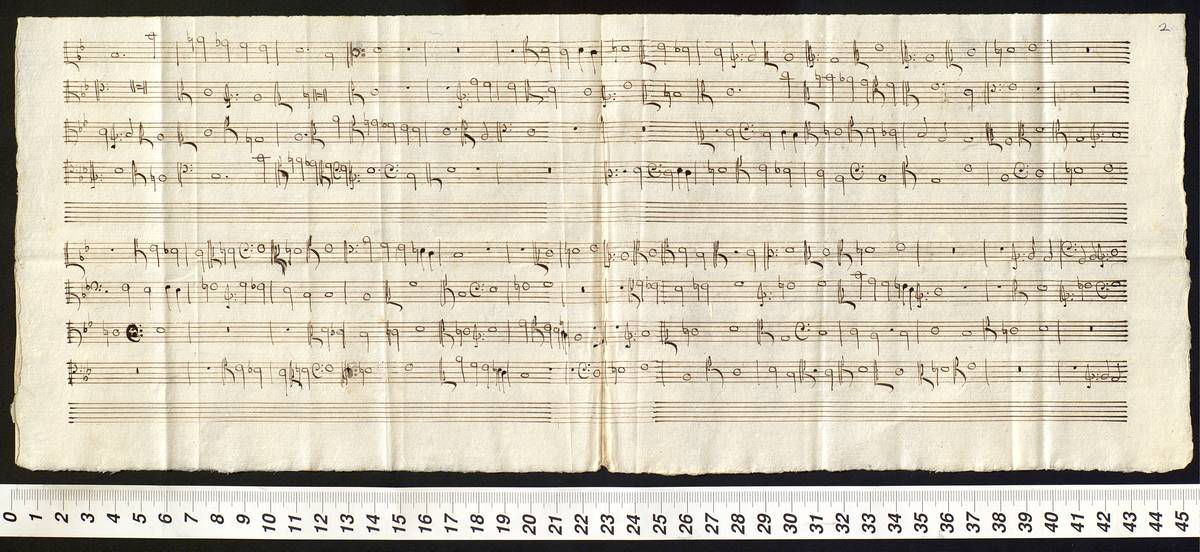 2
0 1 2 3 4 5 6 7 8 9 10 11 12 13 14 15 16 17 18 19 20 21 22 23 24 25 26 27 28 29 30 31 32 33 34 35 36 37 38 39 40 41 42 43 44 45